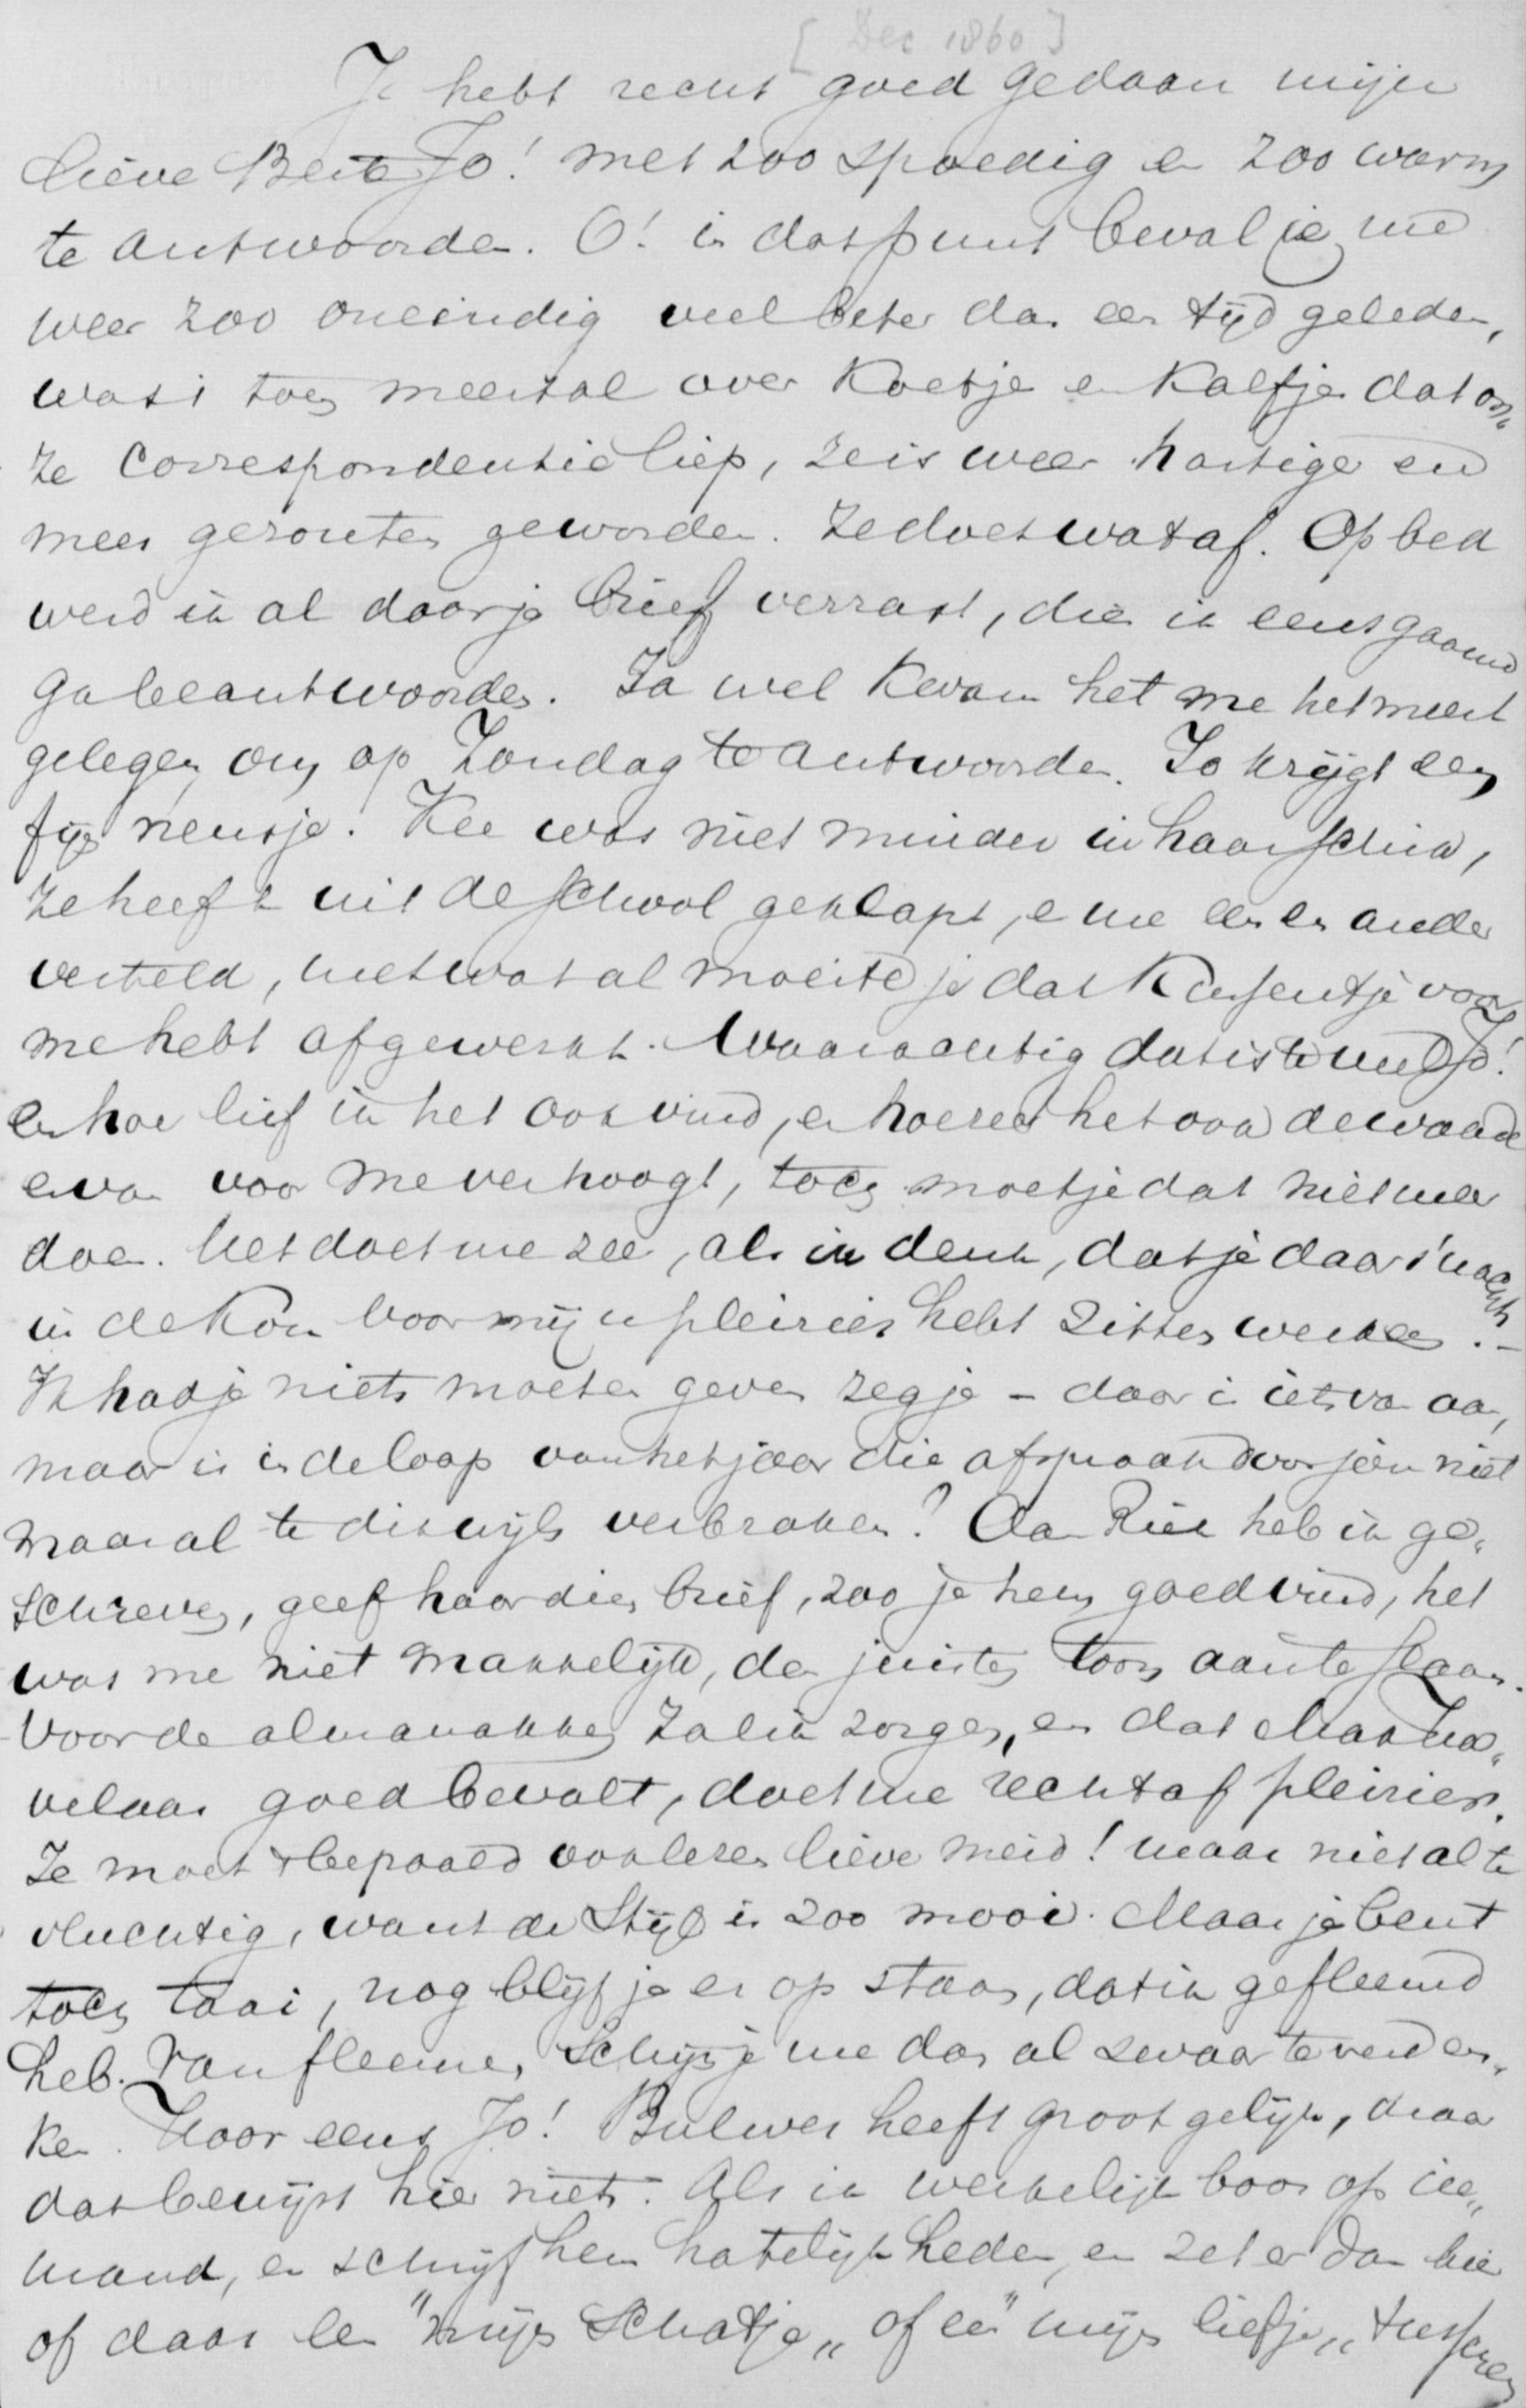 [Dec 1860]
Je hebt recht goed gedaan mijn
lieve Beste Jo! met zoo spoedig en zoo warm
te antwoorden. O! in dat punt beval je me
weer zoo oneindig veel beter dan een tijd geleden,
was 't toen meestal over Koetje en Kalfje dat on„
ze correspondentie liep, ze is weer hartiger en
meer gezouten geworden. Ze doet wat af. Op bed
werd ik al door je brief verrast, dien ik eensgaand
ga beantwoorden. Ja wel kwam het me het meest
gelegen om op Zondag te antwoorden. Jo krijgt een
fijn neusje. Kee was niet minder in haar schik,
ze heeft uit de school geklapt, en me een en ander
verteld, met wat al moeite je dat Kussentje voor
me hebt afgewerkt. Waarachtig dat is te veel Jo!
en hoe lief ik het ook vind, en hoezeer het ook de waarde
ervan voor me verhoogt, toch moet je dat niet meer
doen. Het doet me zeer, als ik denk, dat je daar 's nachts
in de Kou voor mijn pleizier hebt zitten werken. –
Ik had je niets moeten geven zeg je – daar is iets van aan,
maar is in de loop van het jaar die afspraak door jou niet
maar al te dikwijls verbroken? Aan Rie heb ik ge„
schreven, geef haar dien brief, zoo je hem goedvind, het
was me niet makkelijk, den juisten toon aan te slaan.
Voor de almanakken zal ik zorgen, en dat Max Ha„
velaar goed bevalt, doet me rechtaf pleizier.
Je moet bepaald ook lezen lieve meid! maar niet al te
vluchtig, want de Stijl is zoo mooi. Maar je bent
toch taai, nog blijf je er op staan, dat ik gefleemd
heb. Van fleemen schijn je me dan al zwaar te verden„
ken. Hoor eens Jo! Bulwer heeft groot gelijk, maar
dat bewijst hier niets. Als ik werkelijk boos op ie„
mand, en schrijf hem hatelijkheden, en zet er dan hier
of daar een "mijn Schatje„ of een "mijn liefje„ tusschen